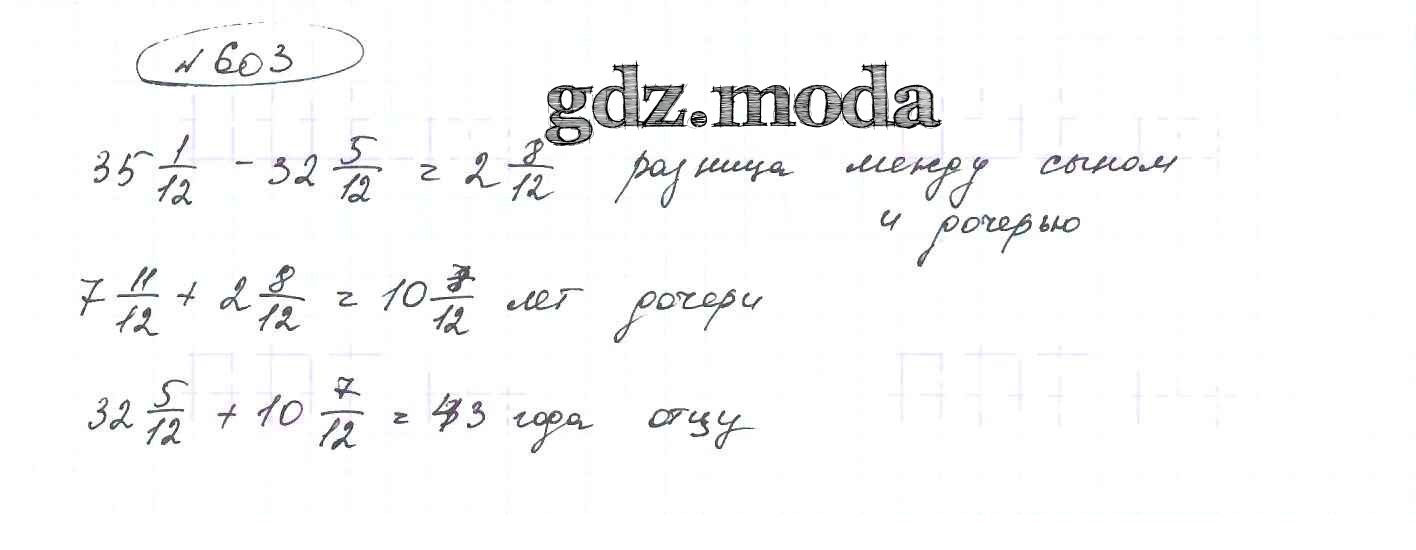 № 603
gdz.moda
35 1/12 - 32 5/12 = 2 8/12 разница между сыном
и дочерью
7 11/12 + 2 8/12 = 10 7/12 лет дочери
32 5/12 + 10 7/12 = 43 года отцу